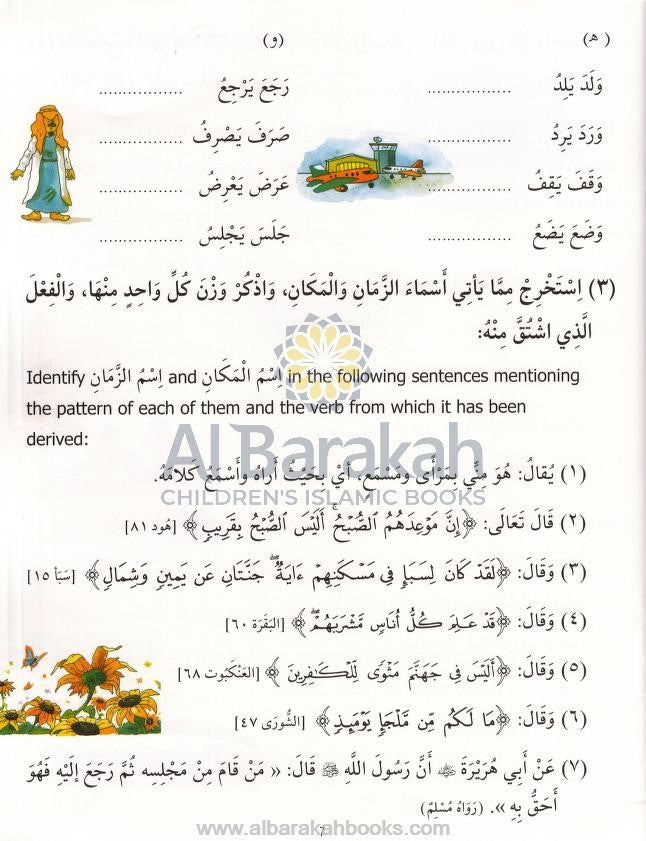 (هـ) (و)
وَلَدَ يَلِدُ ................ رَجَعَ يَرْجِعُ ................
وَرَدَ يَرِدُ ................ صَرَفَ يَصْرِفُ ................
وَقَفَ يَقِفُ ................ عَرَضَ يَعْرِضُ ................
وَضَعَ يَضَعُ ................ جَلَسَ يَجْلِسُ ................
(٣) اِسْتَخْرِجْ مِمَّا يَأتِي أَسْمَاءَ الزَّمَانِ وَالْمَكَانِ، وَاذْكُرْ وَزْنَ كُلِّ وَاحِدٍ مِنْهَا، وَالْفِعْلَ
الَّذِي اشْتُقَّ مِنْهُ:
Identify اِسْمُ الزَّمَانِ and اِسْمُ الْمَكَانِ in the following sentences mentioning
the pattern of each of them and the verb from which it has been
derived:
Al Barakah
CHILDREN'S ISLAMIC BOOKS
(١) يُقالُ: هُوَ مِنِّي بِمَرْأًى وَمَسْمَعٍ، أَيْ بِحَيْثُ أَرَاهُ وَأَسْمَعُ كَلَامَهُ.
(٢) قَالَ تَعَالَى: ﴿إِنَّ مَوْعِدَهُمُ ٱلصُّبْحُ ۚ أَلَيْسَ ٱلصُّبْحُ بِقَرِيبٍ﴾ [هُود ٨١]
(٣) وَقَالَ: ﴿لَقَدْ كَانَ لِسَبَإٍ فِى مَسْكَنِهِمْ ءَايَةٌ ۖ جَنَّتَانِ عَن يَمِينٍ وَشِمَالٍ﴾ [سَبَأ ١٥]
(٤) وَقَالَ: ﴿قَدْ عَلِمَ كُلُّ أُنَاسٍ مَّشْرَبَهُمْ ۖ﴾ [البَقَرَة ٦٠]
(٥) وَقَالَ: ﴿أَلَيْسَ فِى جَهَنَّمَ مَثْوًى لِّلْكَٰفِرِينَ﴾ [العَنْكَبُوت ٦٨]
(٦) وَقَالَ: ﴿مَا لَكُم مِّن مَّلْجَإٍ يَوْمَئِذٍ﴾ [الشُّورَى ٤٧]
(٧) عَنْ أَبِي هُرَيْرَةَ ﷺ أَنَّ رَسُولَ اللَّهِ ﷺ قَالَ: «مَنْ قَامَ مِنْ مَجْلِسِهِ ثُمَّ رَجَعَ إِلَيْهِ فَهُوَ
أَحَقُّ بِهِ». (رَوَاهُ مُسْلِمٌ)
www.albarakahbooks.com